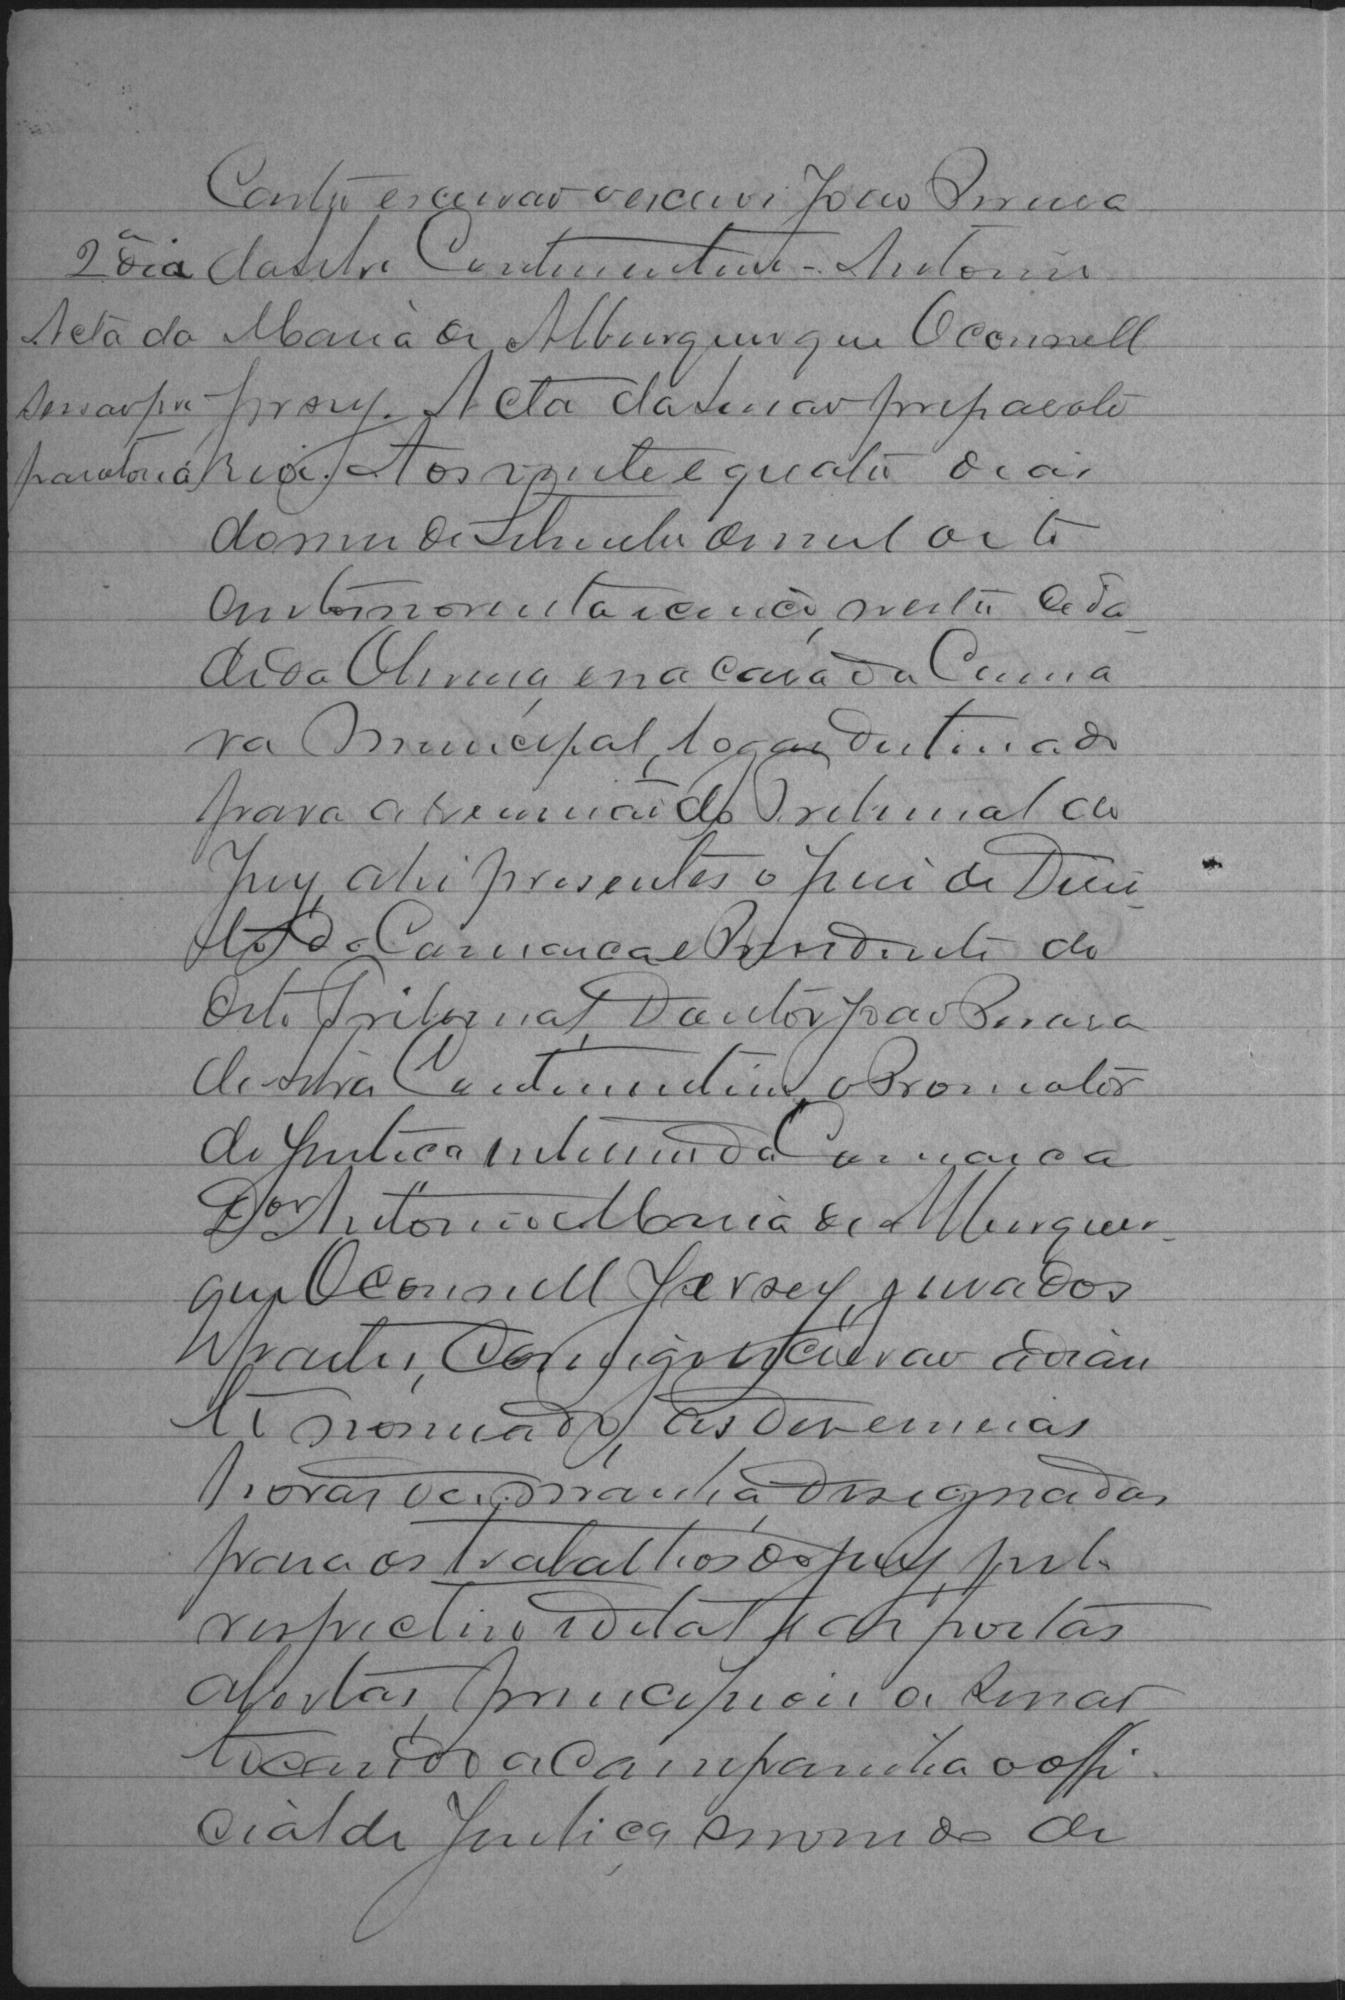 Castro escrivão o escrevi João Pereira
2º dia da Silva Continentino - Antonio
Acta da Maria de Alburquerque Oconnell
sessão pre- Jersey. Acta da sessão preparato
paratoria ria. Aos vinte e quatro dias
do mez de Setembro de mil oito
centos noventa e cinco, nesta cida_
de da Oliveira e na casa da Cama
ra Municipal, logar destinado
para a reunião do Tribunal do
Jury, ahi presentes o juiz de Direi_
to da Comarca e Presidente do
este Tribunal, Doutor João Pereira
da Silva Continentino, o Promotor
de Justiça interino da Comarca
Dor Antonio Maria de Alburquer_
que Oconnell Jersey, jurados
partes, comigo escrivão adian
te nomeado, as dez e meias
horas da manhã, designadas
para os trabalhos do jury, pelo
respectivo edital, e as portas
abertas, principiou a sessão
tocando a campanhia o offi_
cial de Justiça de